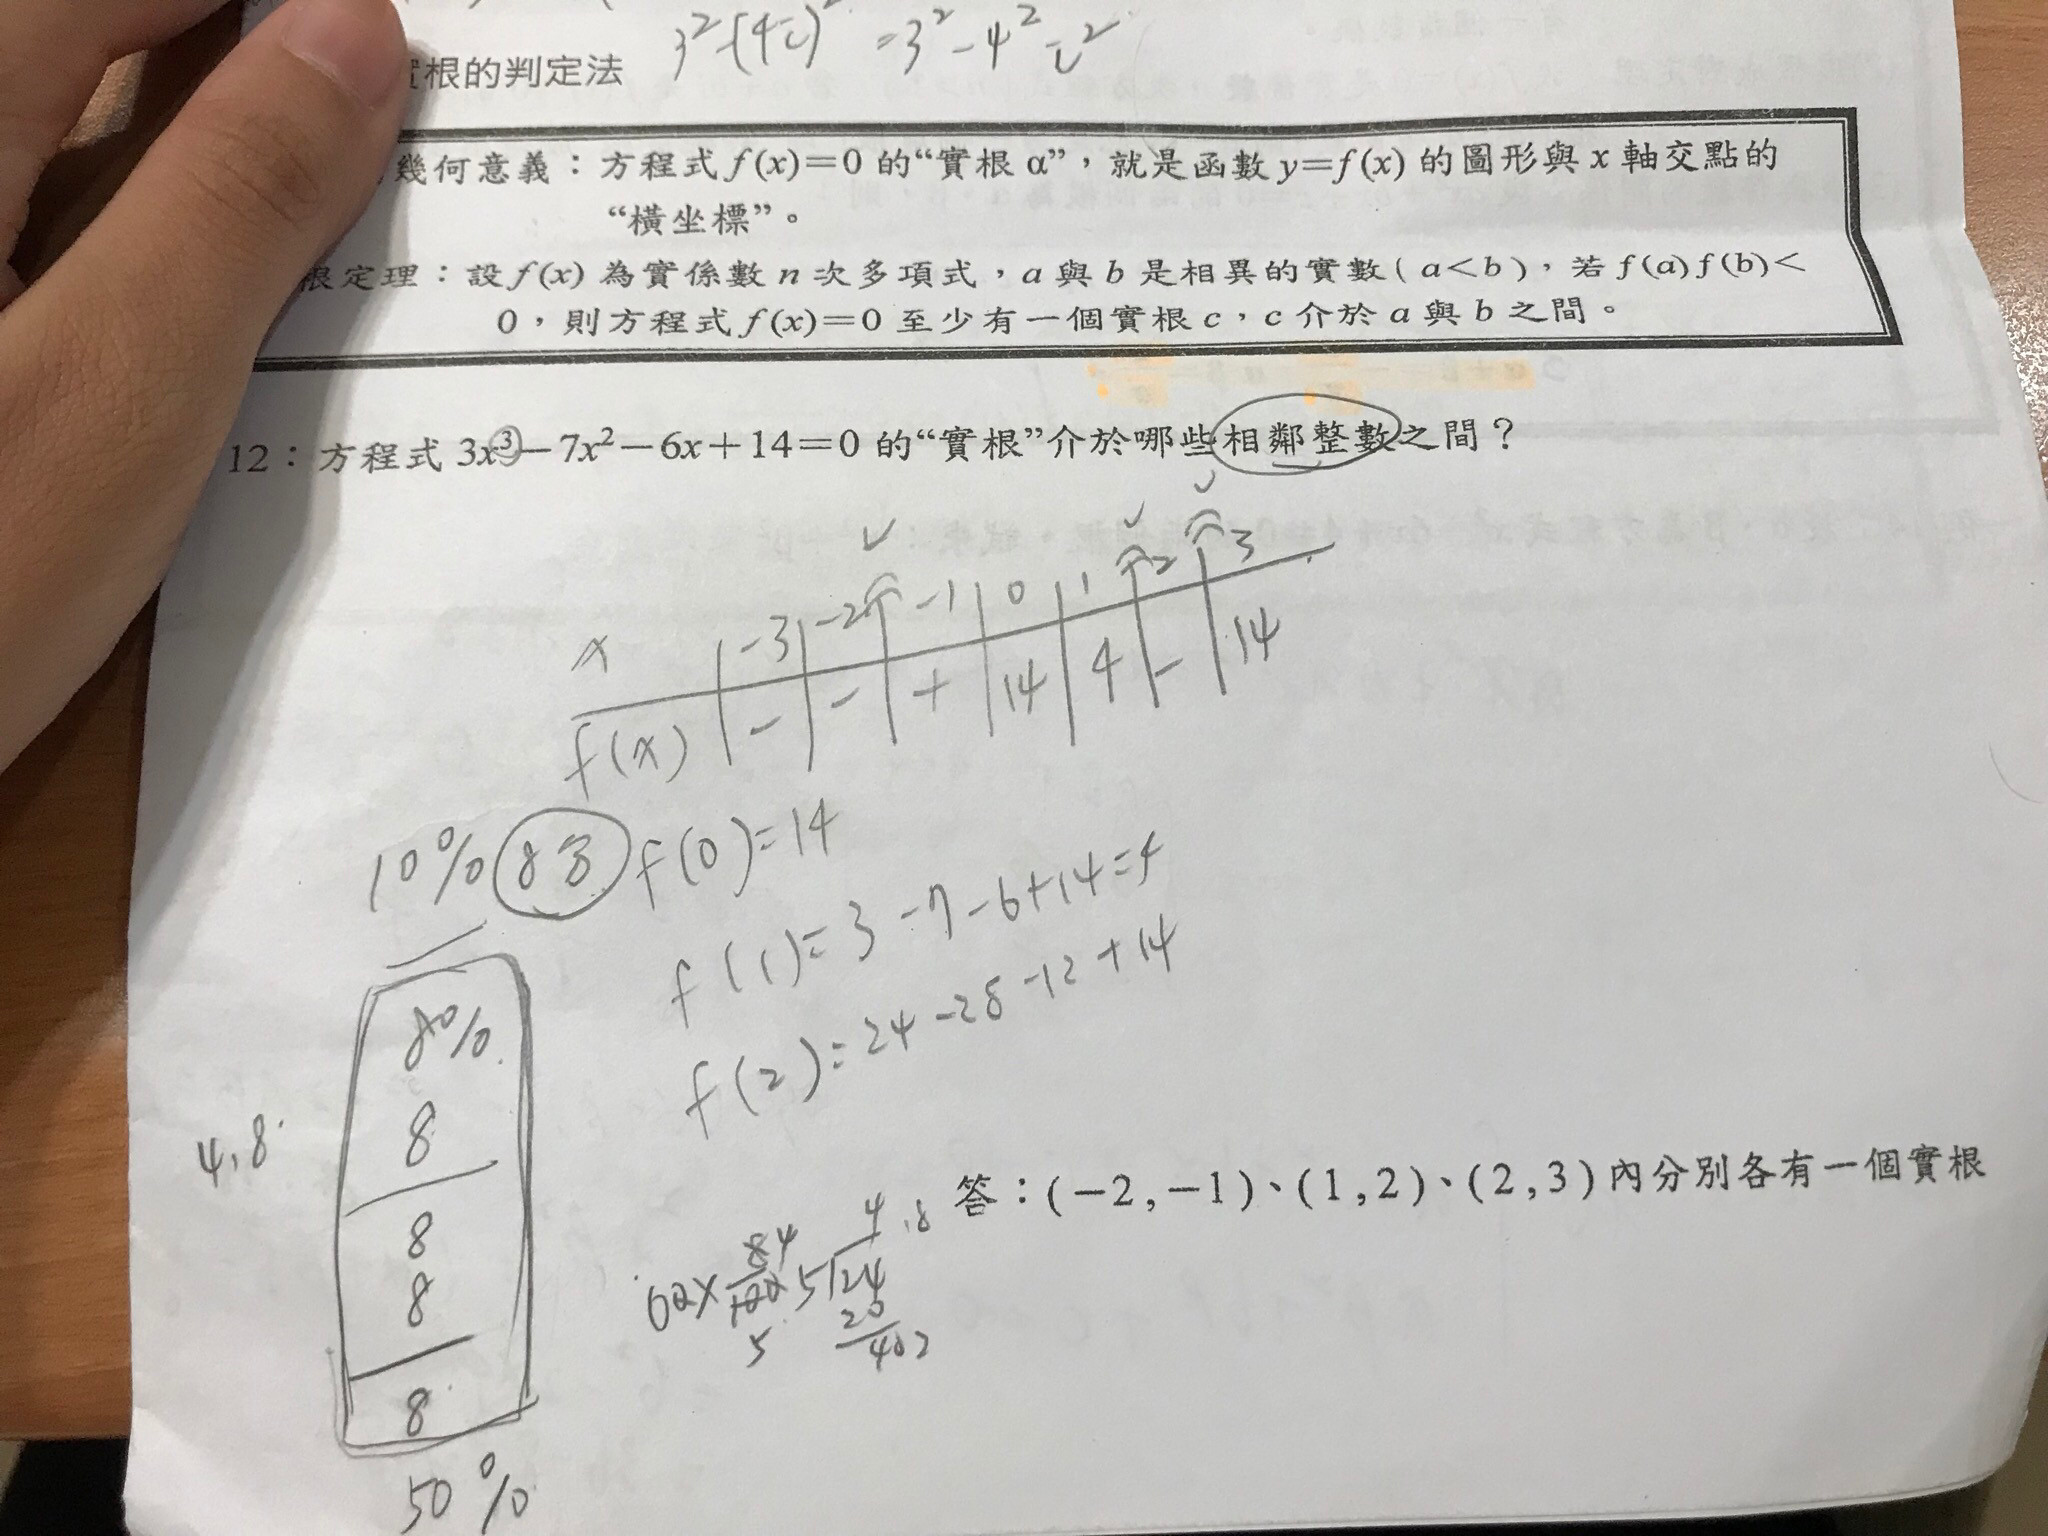 3²-(4i)² =3²-4²i²
根的判定法
幾何意義：方程式 f(x)=0 的“實根 α”，就是函數 y=f(x) 的圖形與 x 軸交點的
“橫坐標”。
根定理：設 f(x) 為實係數 n 次多項式，a 與 b 是相異的實數( a<b )，若 f(a)f(b)<
0，則方程式 f(x)=0 至少有一個實根 c，c 介於 a 與 b 之間。
12：方程式 3x³-7x²-6x+14=0 的“實根”介於哪些相鄰整數之間？
x -3 -2 -1 0 1 2 3
f(x) - - + 14 4 - 14
10% f(0)=14
f(1)=3-7-6+14=4
f(2)=24-28-12+14
80%
8
4.8
8
8
8
50%
答：(-2,-1)、(1,2)、(2,3)內分別各有一個實根
4.8
5 24
20
40